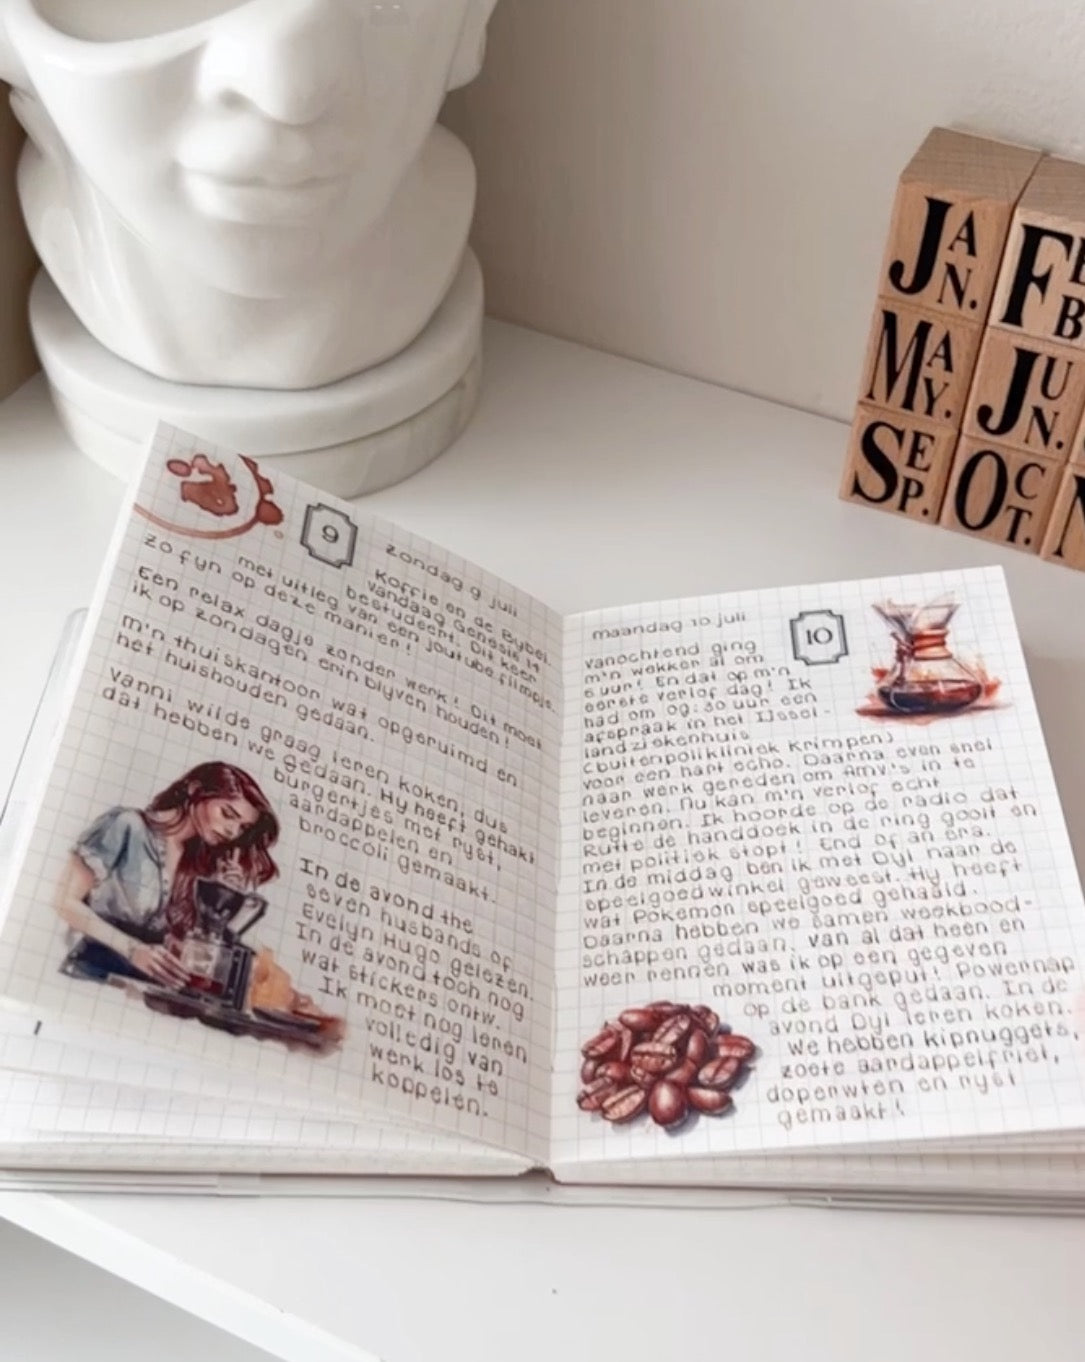 JAN.
FEB
MAY.
JUN.
SEP.
OCT.
N
9
zondag 9 juli
Koffie en de Bybel.
Vandaag Genesis 14
bestudeert. Dit keer
met uitleg van een youtube filmpje.
zo fyn op deze manier!
Een relax dagje zonder werk! Dit moet
ik op zondagen erin blyven houden!
m'n thuiskantoor wat opgeruimd en
het huishouden gedaan.
Vanni wilde graag leren koken, dus
dat hebben we gedaan. Hy heeft gehakt
burgertjes met ryst,
aardappelen en
broccoli gemaakt.
In de avond the
seven husbands of
Evelyn Hugo gelezen.
In de avond toch nog
wat stickers ontw.
Ik moet nog leren
volledig van
werk los te
koppelen.
maandag 10 juli
10
vanochtend ging
m'n wekker al om
6 uur! En dat op m'n
eerste verlof dag! Ik
had om 09:30 uur een
afspraak in het IJssel-
landziekenhuis
(buitenpolikliniek Krimpen)
voor een hart echo. Daarna even snel
naar werk gereden om Amy's in te
leveren. Nu kan m'n verlof echt
beginnen. Ik hoorde op de radio dat
Rutte de handdoek in de ring gooit en
met politiek stopt! End of an era.
In de middag ben ik met Dyl naar de
speelgoedwinkel geweest. Hy heeft
wat Pokemon speelgoed gehaald.
Daarna hebben we samen weekbood-
schappen gedaan. van al dat heen en
weer rennen was ik op een gegeven
moment uitgeput! Powernap
op de bank gedaan. In de
avond Dyl leren koken.
We hebben kipnuggets,
zoete aardappelfriet,
doperwten en ryst
gemaakt!